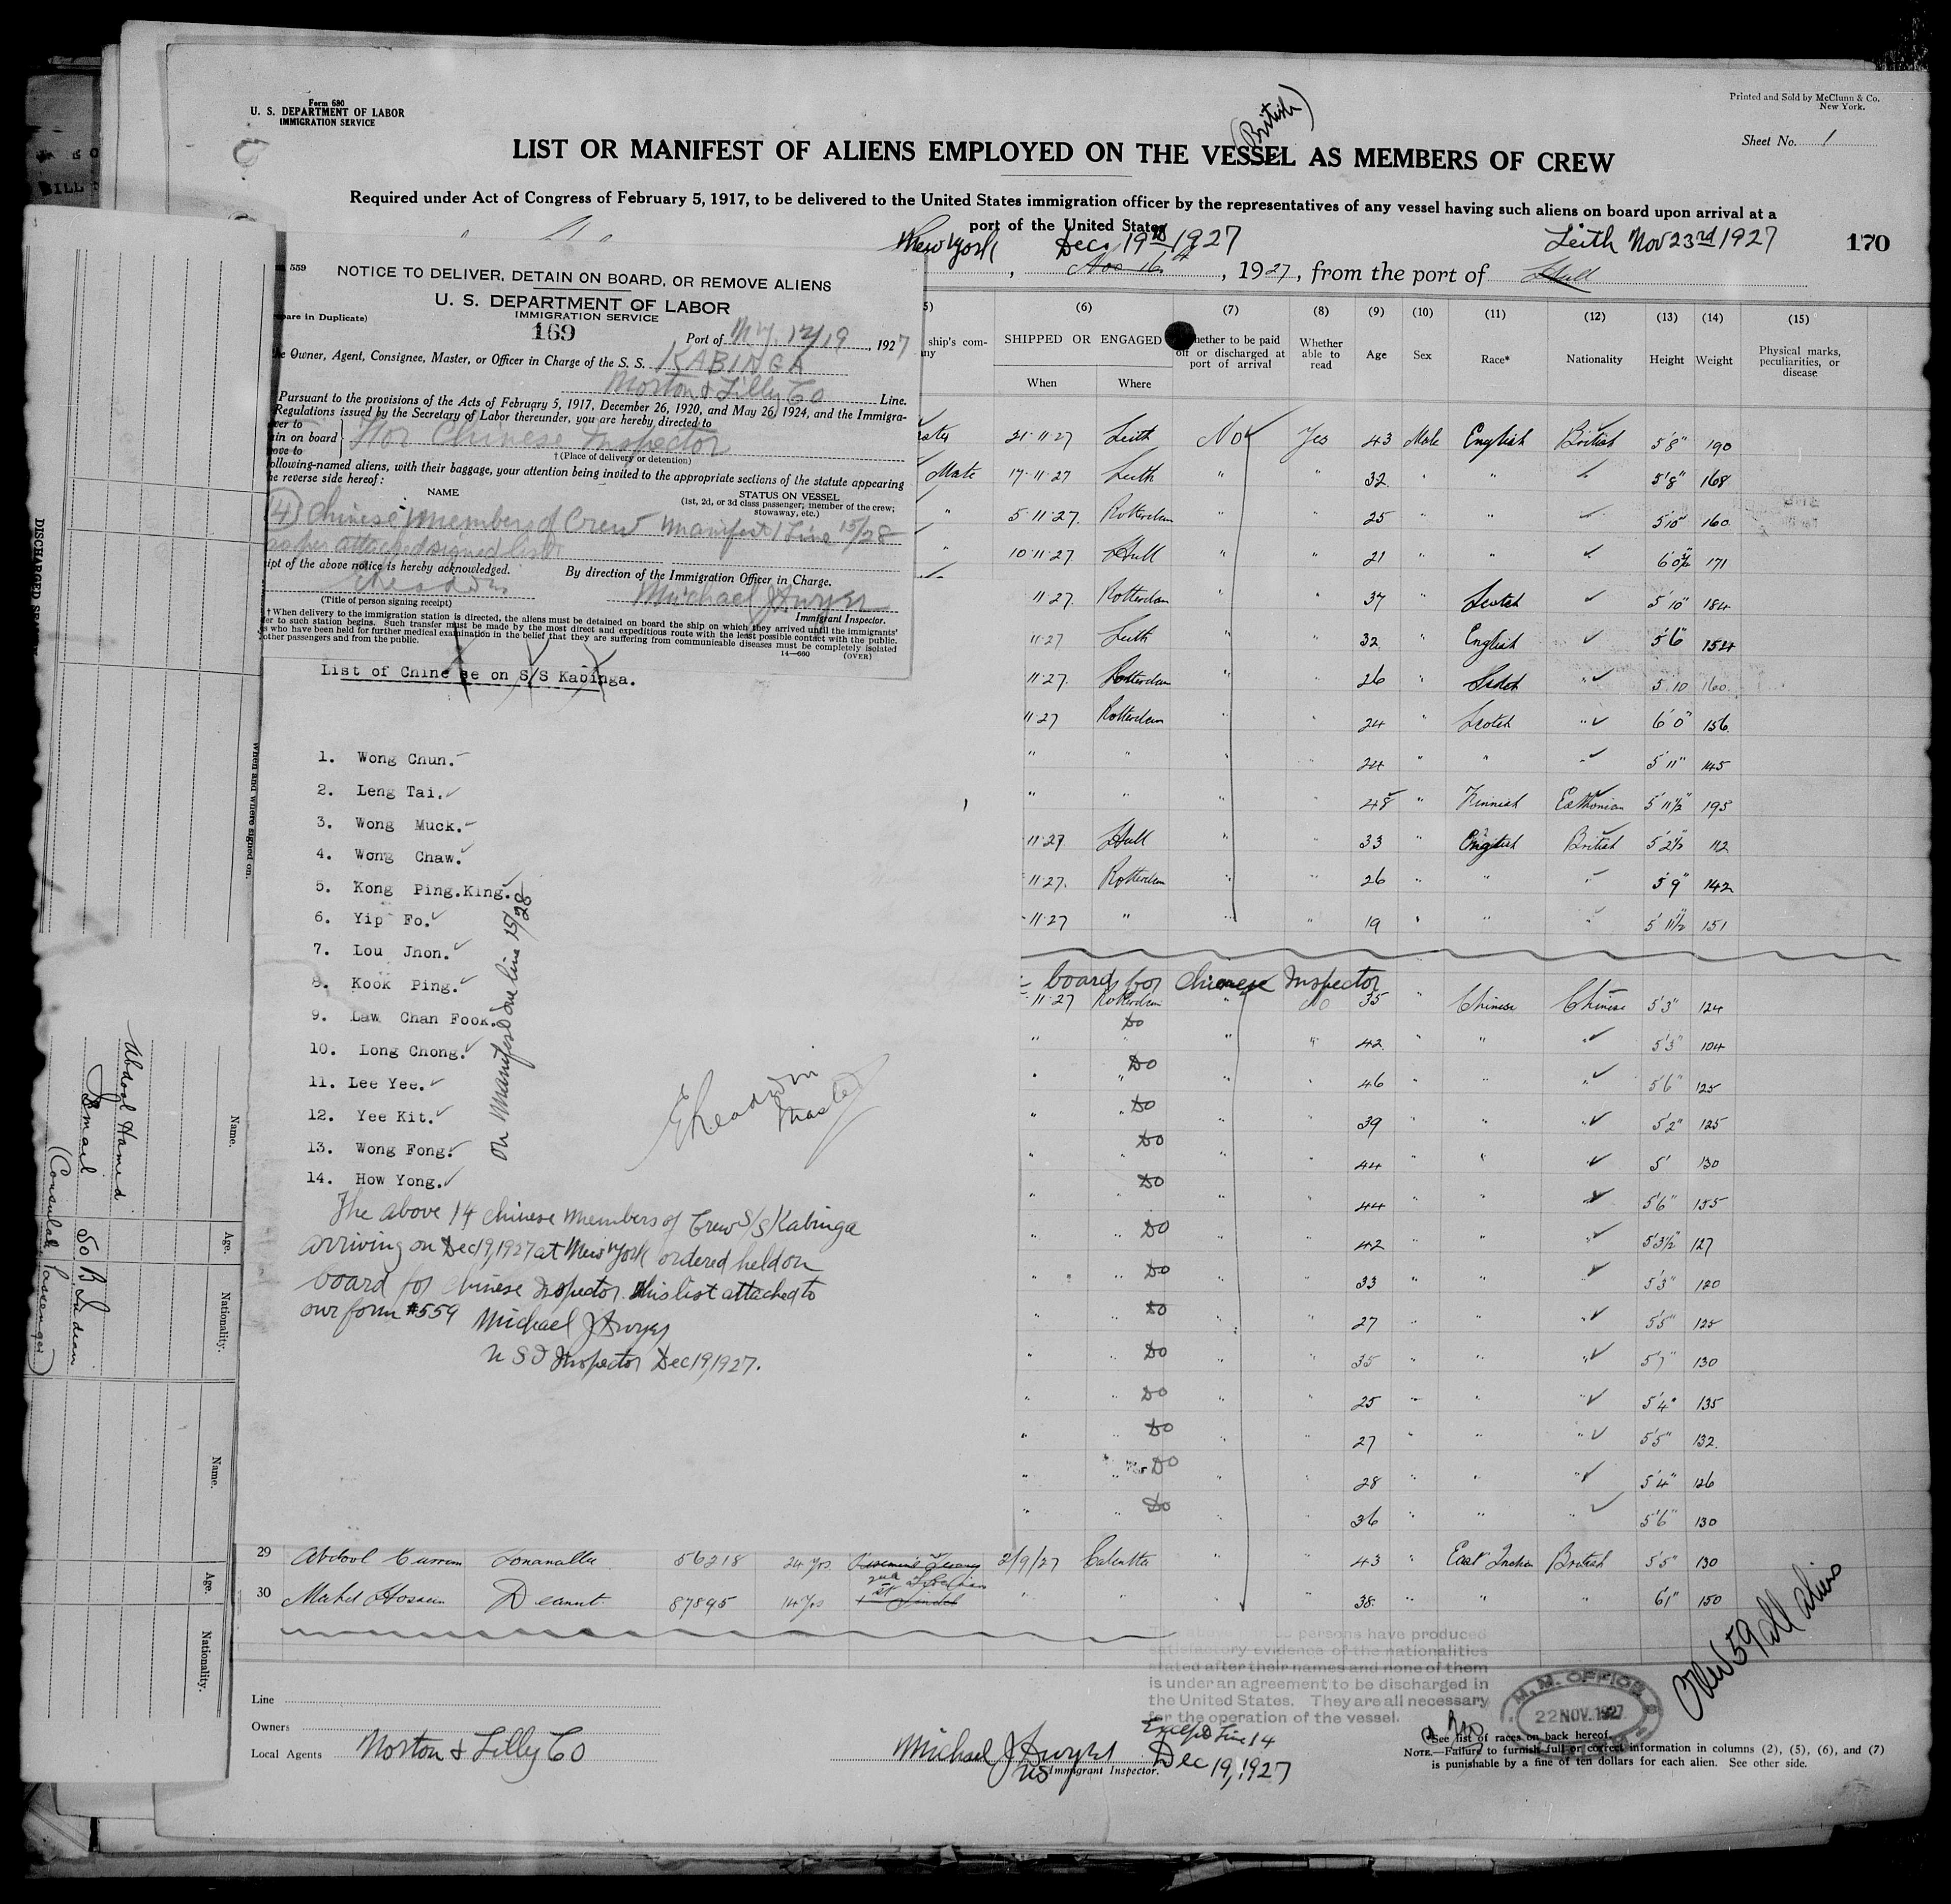 Form 680
U. S. DEPARTMENT OF LABOR
IMMIGRATION SERVICE
Printed and Sold by McClunn & Co.
New York.
Sheet No. 1
(British)
LIST OR MANIFEST OF ALIENS EMPLOYED ON THE VESSEL AS MEMBERS OF CREW
Required under Act of Congress of February 5, 1917, to be delivered to the United States immigration officer by the representatives of any vessel having such aliens on board upon arrival at a
port of the United States
New York Dec 19th 1927 Leith Nov 23rd 1927 170
, Nov 16th, 1927, from the port of Hull
559
NOTICE TO DELIVER, DETAIN ON BOARD, OR REMOVE ALIENS
U. S. DEPARTMENT OF LABOR
IMMIGRATION SERVICE
pare in Duplicate)
169
Port of N.Y. 12/19, 1927
he Owner, Agent, Consignee, Master, or Officer in Charge of the S. S. KABINGA
Norton & Lilly Co Line.
Pursuant to the provisions of the Acts of February 5, 1917, December 26, 1920, and May 26, 1924, and the Immigra-
Regulations issued by the Secretary of Labor thereunder, you are hereby directed to
ver to
ain on board } For Chinese Inspector
ove to
† (Place of delivery or detention)
ollowing-named aliens, with their baggage, your attention being invited to the appropriate sections of the statute appearing
he reverse side hereof:
NAME STATUS ON VESSEL
(1st, 2d, or 3d class passenger; member of the crew;
stowaway, etc.)
Chinese Members of Crew Manifest 1 Line 15/28
as per attached signed list
ipt of the above notice is hereby acknowledged.
By direction of the Immigration Officer in Charge.
Michael J Dwyer
(Title of person signing receipt) Immigrant Inspector.
† When delivery to the immigration station is directed, the aliens must be detained on board the ship on which they arrived until the immigrants'
fer to such station begins. Such transfer must be made by the most direct and expeditious route with the least possible contact with the public.
s who have been held for further medical examination in the belief that they are suffering from communicable diseases must be completely isolated
other passengers and from the public.
14—660 (OVER)
List of Chinese on S/S Kabinga.
1. Wong Chun.
2. Leng Tai.
3. Wong Muck.
4. Wong Chaw.
5. Kong Ping.King.
6. Yip Fo.
7. Lou Jhon.
8. Kook Ping.
9. Law Chan Fook.
10. Long Chong.
11. Lee Yee.
12. Yee Kit.
13. Wong Fong.
14. How Yong.
On Manifest one line 15/28
Master
The above 14 Chinese Members of Crew S/S Kabinga
arriving on Dec 19, 1927 at New York ordered held on
board for Chinese Inspector. This list attached to
our form #559 Michael J Dwyer
U S I Inspector Dec 19, 1927.
5) (6) (7) (8) (9) (10) (11) (12) (13) (14) (15)
ship's com-
ny
SHIPPED OR ENGAGED
When Where
Whether to be paid
off or discharged at
port of arrival
Whether
able to
read
Age Sex Race* Nationality Height Weight
Physical marks,
peculiarities, or
disease
21·11·27 Leith No Yes 43 Male English British 5'8" 190
Mate 17·11·27 Leith " " 32 " " " 5'8" 168
" 5·11·27. Rotterdam " " 25 " " 5'10" 160
" 10·11·27 Hull " " 21 " " 6'0½" 171
11·27. Rotterdam " " 37 " Scotch 5'10" 184
11·27 Leith " " 32 " English 5'6" 154
11·27. Rotterdam " " 26 " Scotch " 5'10 160
11·27 Rotterdam " " 24 " Scotch " 6'0" 156
" " " " 24 " " " 5'11" 145
" " " " 48 " Finnish Esthonian 5'11½" 195
11·27. Hull " " 33 " English British 5'2½ 112
11·27. Rotterdam " " 26 " " " 5'9" 142
11·27 " " 19 " " " 5'11½ 151
board for Chinese Inspector
11·27 Rotterdam " No 35 " Chinese Chinese 5'3" 124
" Do " " 42 " " " 5'3" 104
" Do " " 46 " " " 5'6" 125
" Do " " 39 " " " 5'2" 125
" Do " " 44 " " " 5' 130
" Do " " 44 " " " 5'6" 155
" Do " " 42 " " " 5'3½" 127
" Do " " 33 " " " 5'3" 120
" Do " " 27 " " " 5'5" 125
" Do " " 35 " " " 5'7" 130
" Do " " 25 " " " 5'4" 135
" Do " " 27 " " " 5'5" 132
" Do " " 28 " " " 5'4" 126
" Do " " 36 " " " 5'6" 130
29 Abdool 56218 24 yrs 2/9/27 Calcutta " " 43 " East Indian British 5'5" 130
30 Hossein 87895 14 yrs " " " " 38 " " " 6'1" 150
The above named persons have produced
satisfactory evidence of the nationalities
stated after their names and none of them
is under an agreement to be discharged in
the United States. They are all necessary
for the operation of the vessel.
Except Line 14
Line
Owners
Local Agents Norton & Lilly Co
Michael J Dwyer Dec 19, 1927
US Immigrant Inspector.
M. M. OFFICE
22 NOV. 1927
Crew 59 all aliens
*See list of races on back hereof.
NOTE.—Failure to furnish full or correct information in columns (2), (5), (6), and (7)
is punishable by a fine of ten dollars for each alien. See other side.
DISCHARGED
When and where signed on.
Name. Age. Nationality.
Abdool Hamed
Ismail 50 B Indian
(Consular Passenger)
Name. Age. Nationality.